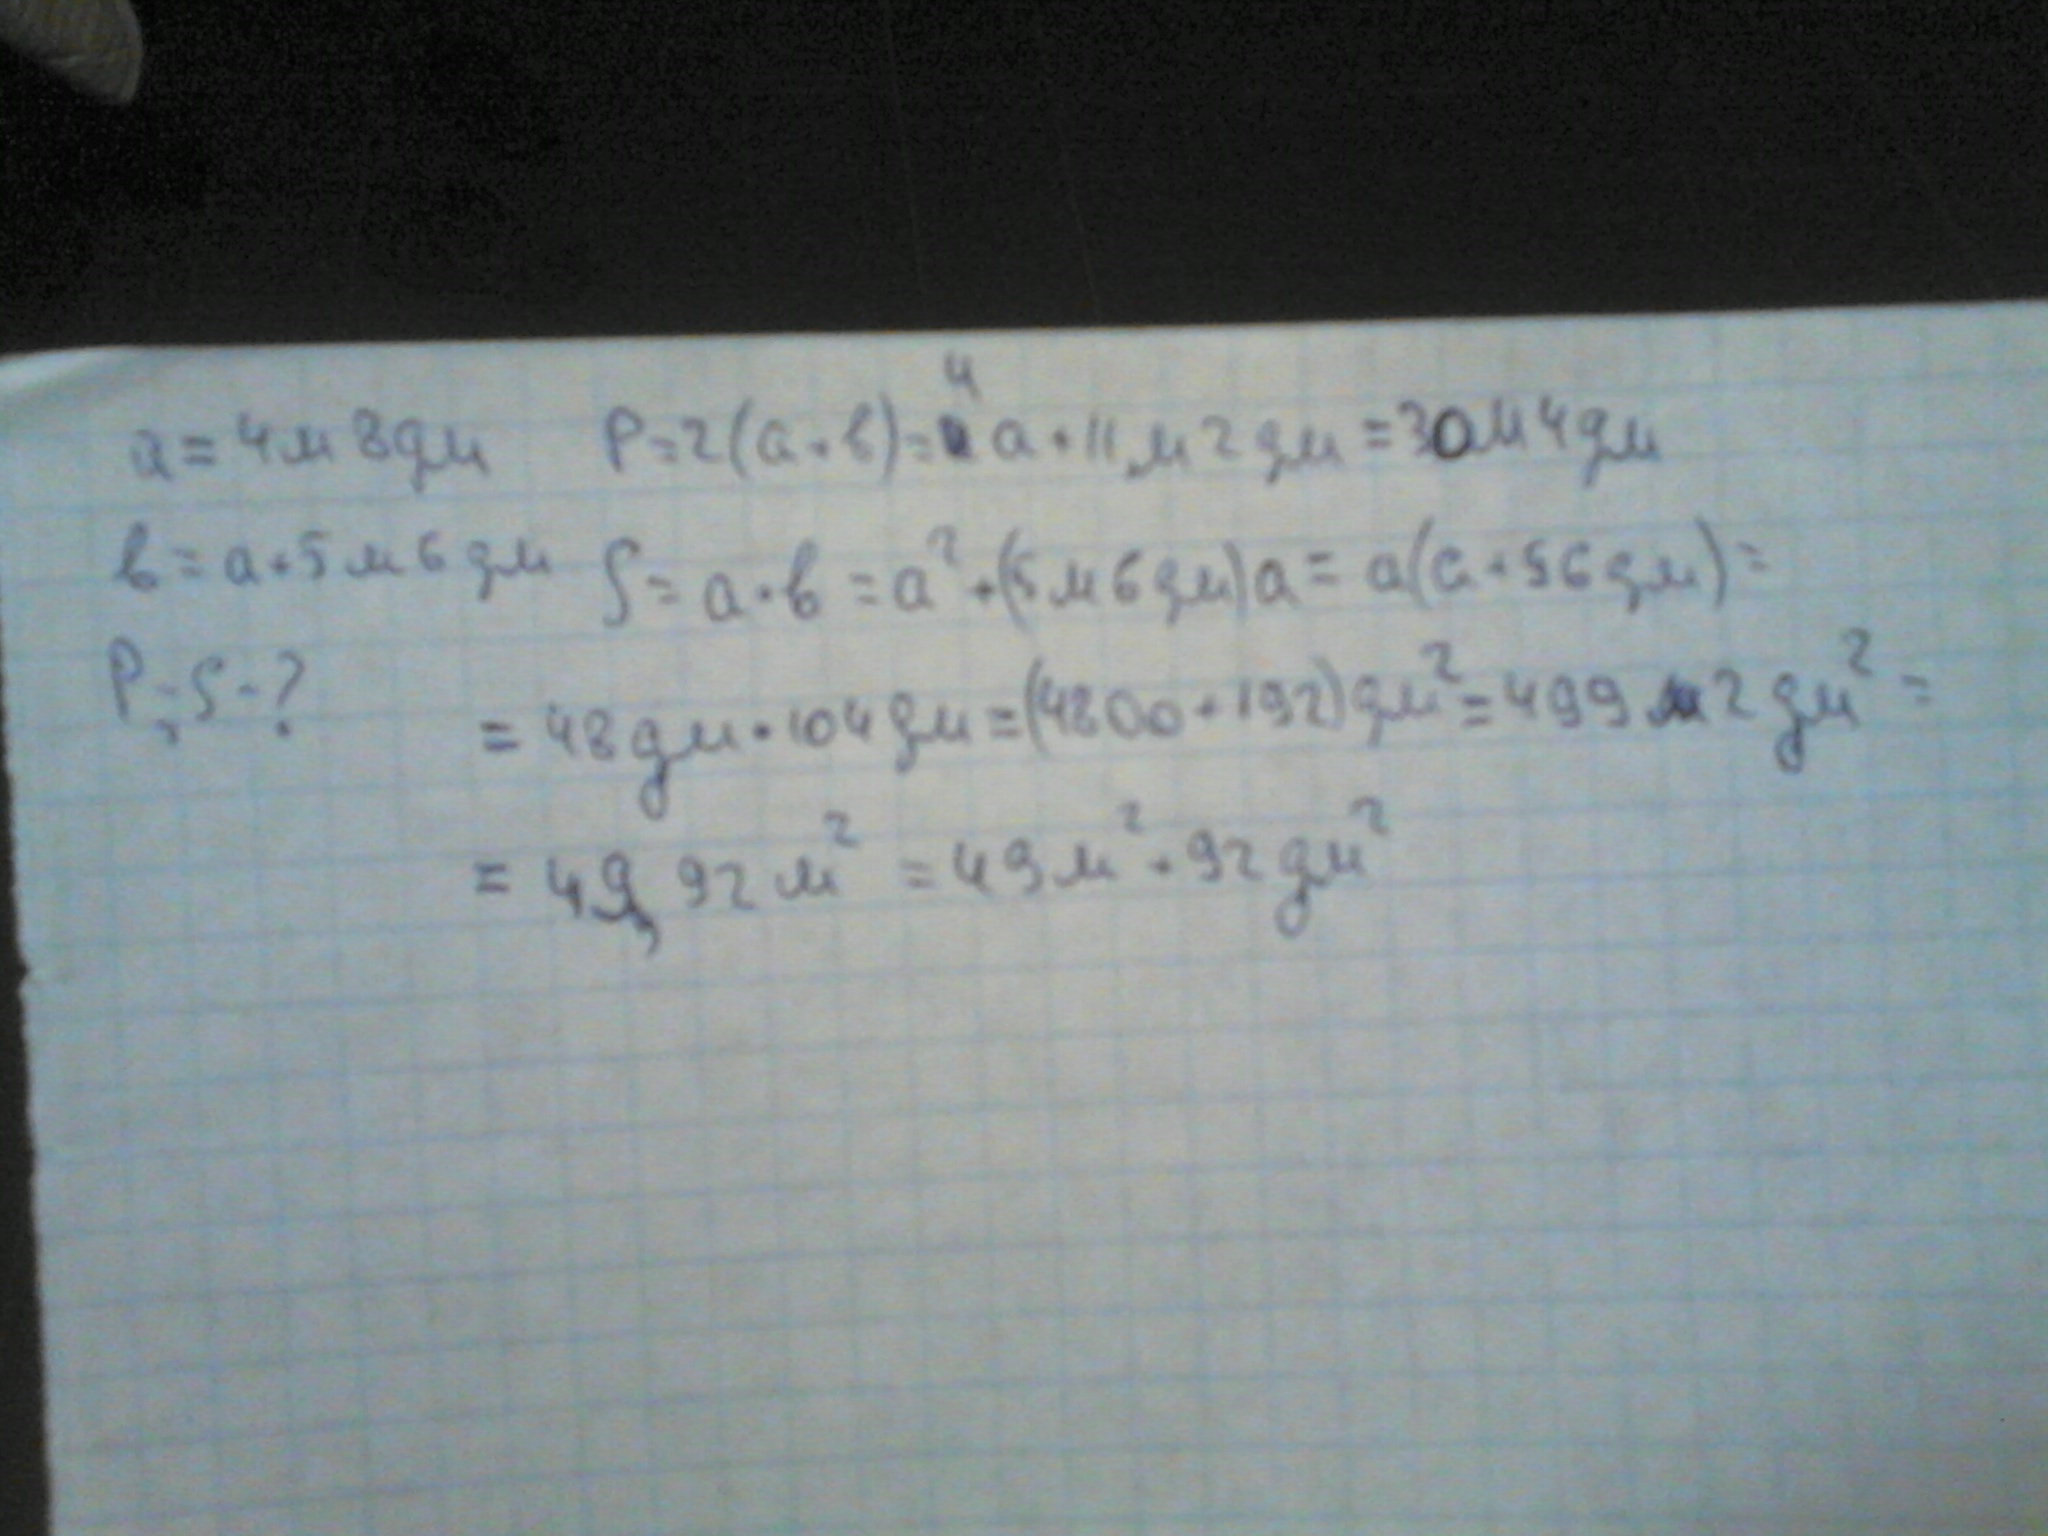 a = 4м 8дм P = 2(a + в) = 4a + 11м 2дм = 30м 4дм
в = a + 5м 6дм S = a · в = a² + (5м 6дм)a = a(a + 56дм) =
P, S - ?
= 48дм · 104дм = (4800 + 192)дм² = 499м2дм² =
= 49,92м² = 49м² + 92дм²